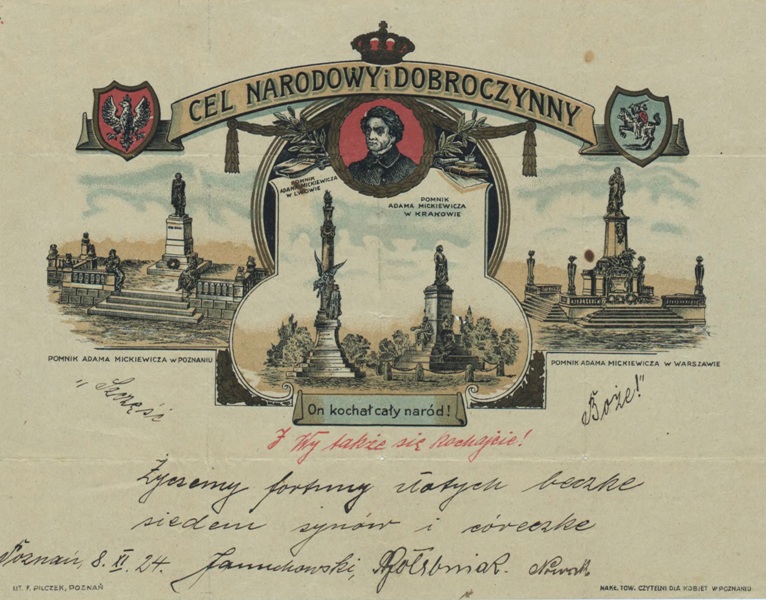 CEL NARODOWY i DOBROCZYNNY
POMNIK
ADAMA MICKIEWICZA
W LWOWIE
POMNIK
ADAMA MICKIEWICZA
W KRAKOWIE
POMNIK ADAMA MICKIEWICZA W POZNANIU
POMNIK ADAMA MICKIEWICZA W WARSZAWIE
"Szczęść
Boże!"
On kochał cały naród!
I Wy także się kochajcie!
Życzemy fortuny złotych beczkę
siedem synów i córeczkę
Poznań, 8. XI. 24. Januchowski, Nowak
LIT. F. PILCZEK, POZNAŃ
NAKŁ. TOW. CZYTELNI DLA KOBIET W POZNANIU